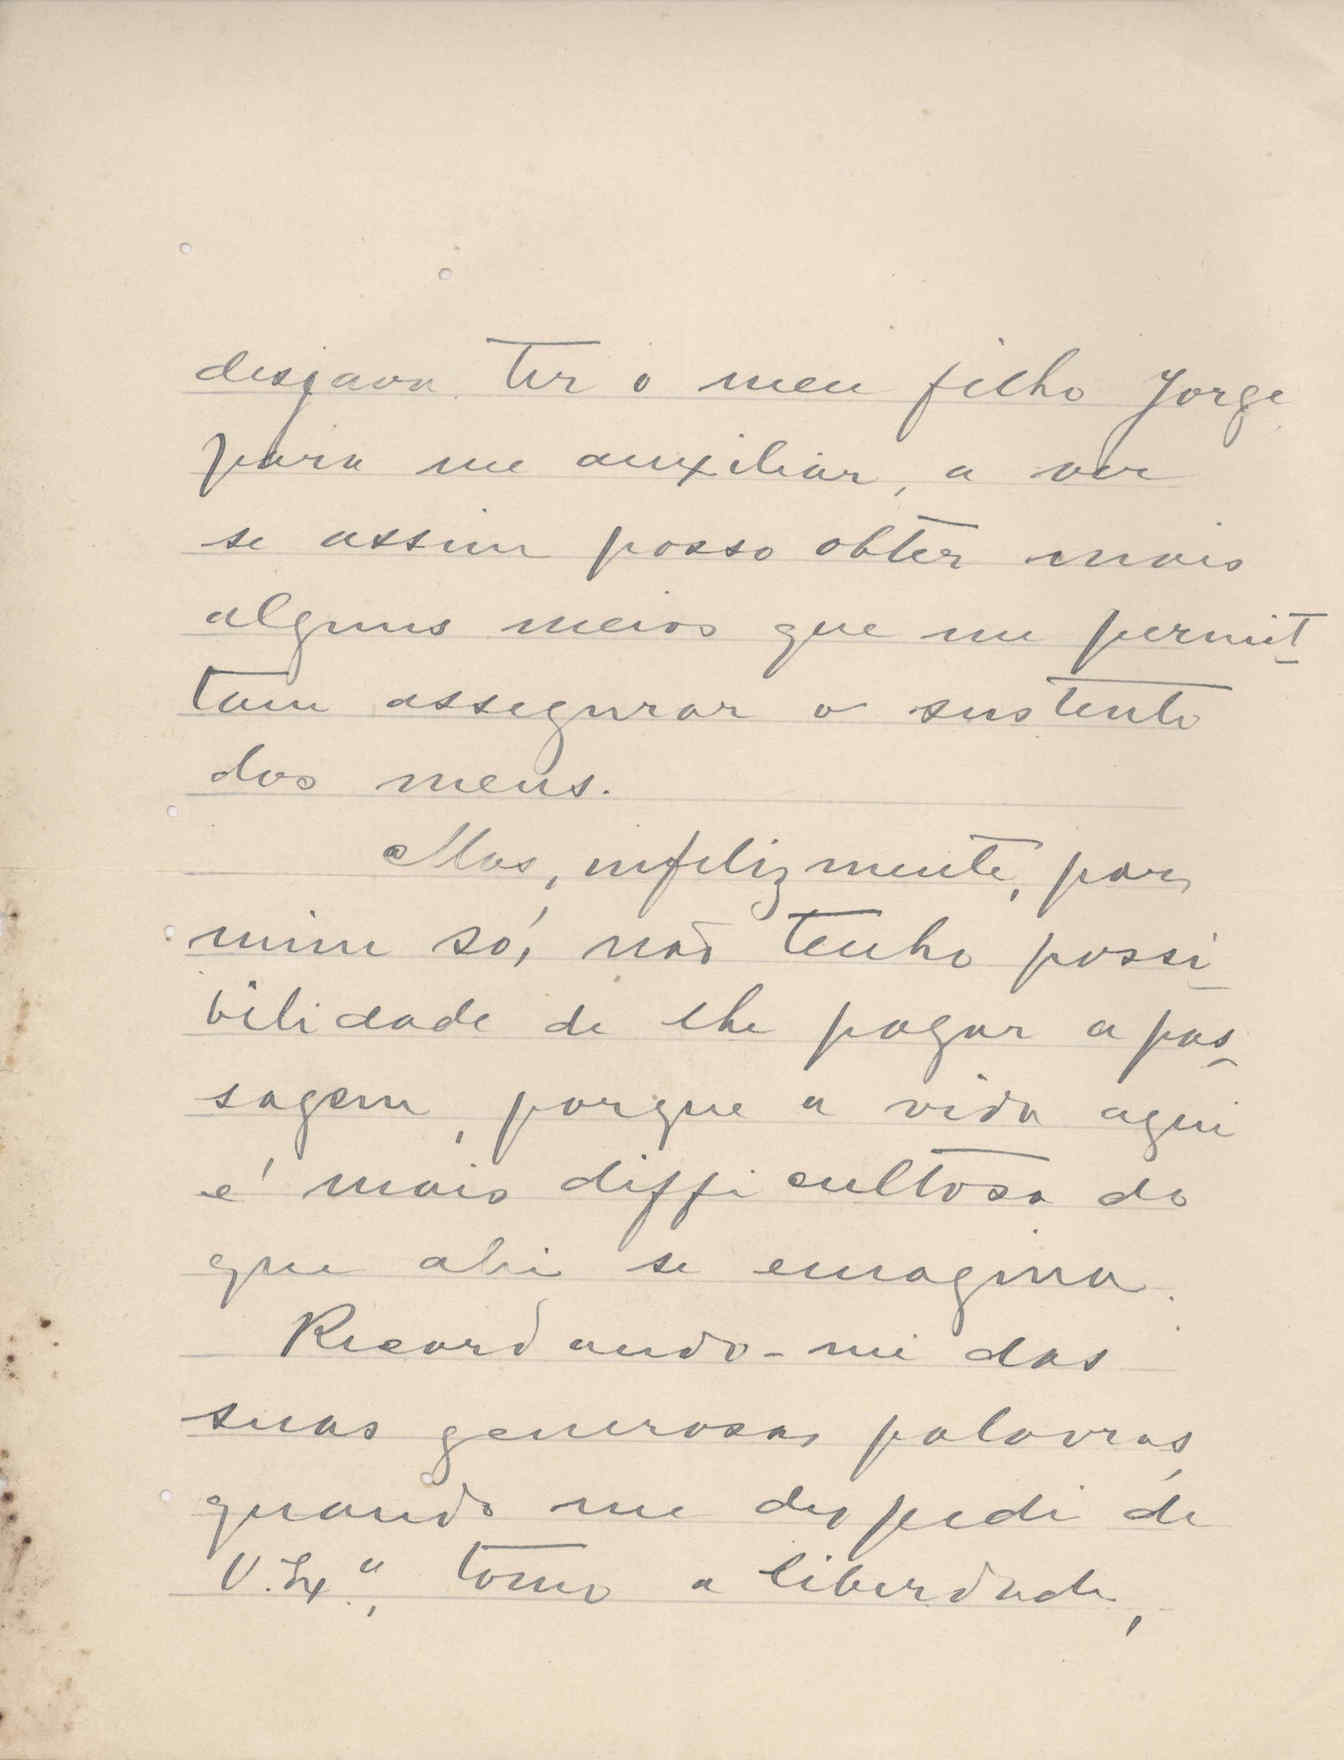 desejava ter o meu filho Jorge
para me auxiliar, a ver
se assim posso obter mais
alguns meios que me permit-
tam assegurar o sustento
dos meus.
Mas, infelizmente, por
mim só, não tenho possi-
bilidade de lhe pagar a pas-
sagem, porque a vida aqui
é mais difficultosa do
que ahi se emagina.
Recordando-me das
suas generosas palavras,
quando me despedi de
V. Ex.ª, tomo a liberdade,